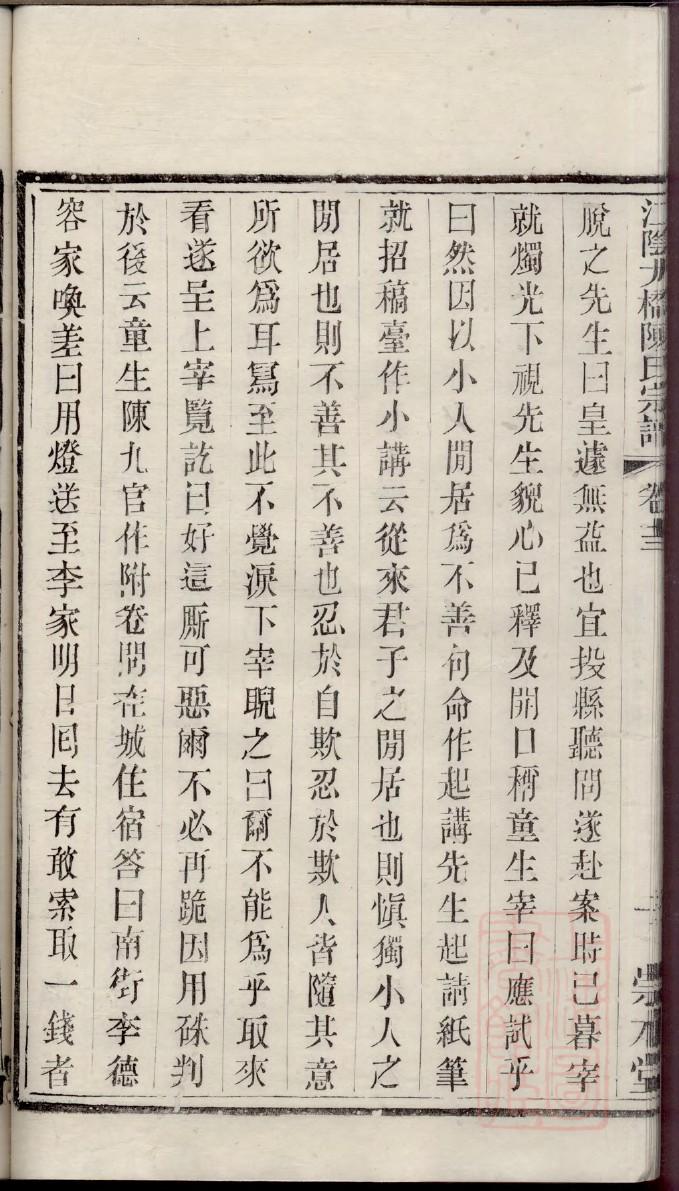 江陰九橋陳氏宗譜 卷十三 崇本堂
脫之先生曰皇遽無益也宜投縣聽問遂赴案時已暮宰
就燭光下視先生貌心已釋及開口稱童生宰曰應試乎
曰然因以小人閒居爲不善句命作起講先生起請紙筆
就招稿臺作小講云從來君子之閒居也則愼獨小人之
閒居也則不善其不善也忍於自欺忍於欺人皆隨其意
所欲爲耳寫至此不覺淚下宰睨之曰爾不能爲乎取來
看遂呈上宰覽訖曰好這厮可惡爾不必再跪因用硃判
於後云童生陳九官作附卷問在城住宿答曰南街李德
容家喚差曰用燈送至李家明日囘去有敢索取一錢者